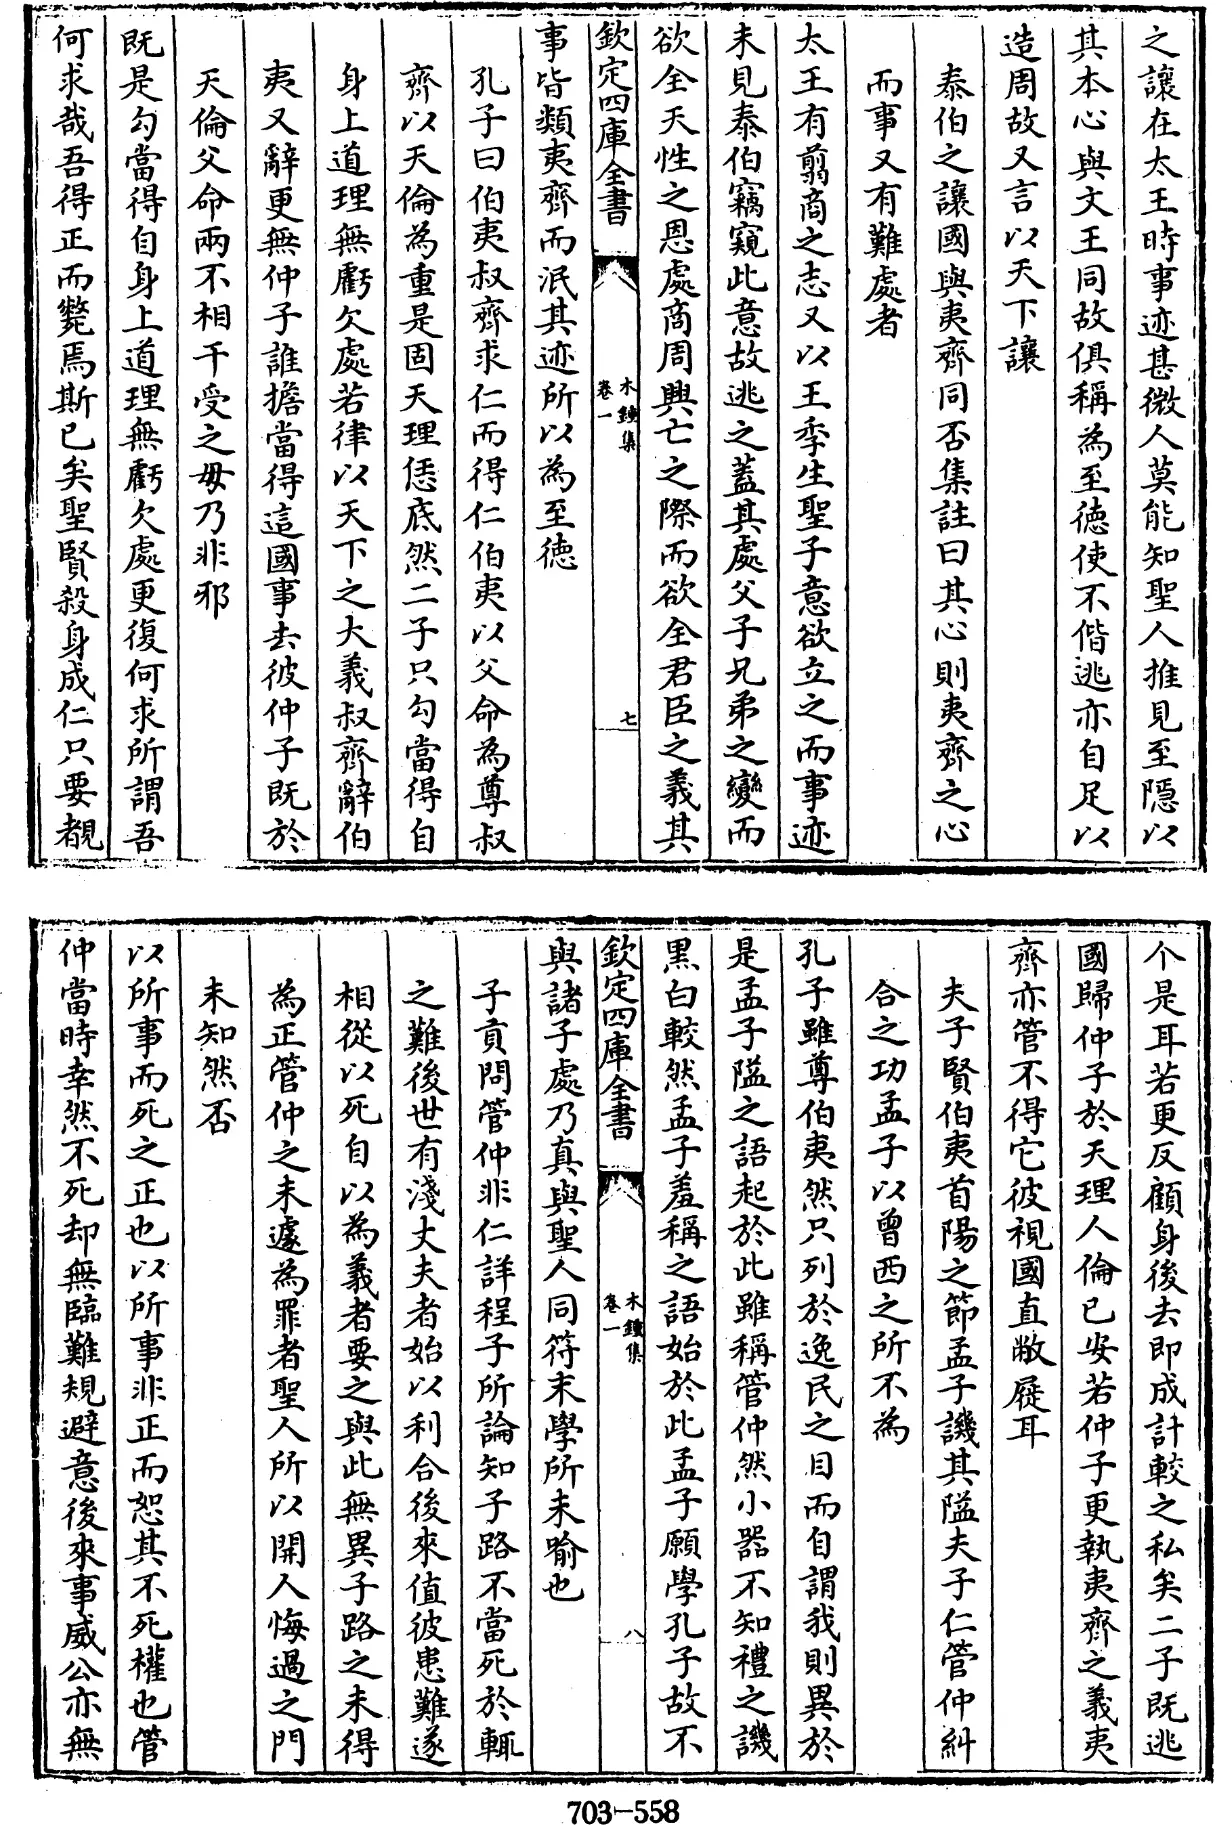 之讓在太王時事迹甚微人莫能知聖人推見至隱以
其本心與文王同故俱稱為至德使不偕逃亦自足以
造周故又言以天下讓
泰伯之讓國與夷齊同否集註曰其心則夷齊之心
而事又有難處者
太王有翦商之志又以王季生聖子意欲立之而事迹
未見泰伯竊窺此意故逃之蓋其處父子兄弟之變而
欲全天性之恩處商周興亡之際而欲全君臣之義其
欽定四庫全書
木鐘集
卷一
七
事皆類夷齊而泯其迹所以為至德
孔子曰伯夷叔齊求仁而得仁伯夷以父命為尊叔
齊以天倫為重是固天理恁底然二子只勾當得自
身上道理無虧欠處若律以天下之大義叔齊辭伯
夷又辭更無仲子誰擔當得這國事去彼仲子既於
天倫父命兩不相干受之毋乃非邪
既是勾當得自身上道理無虧欠處更復何求所謂吾
何求哉吾得正而斃焉斯已矣聖賢殺身成仁只要覩
个是耳若更反顧身後去即成計較之私矣二子既逃
國歸仲子於天理人倫已安若仲子更執夷齊之義夷
齊亦管不得它彼視國直敝屣耳
夫子賢伯夷首陽之節孟子譏其隘夫子仁管仲糾
合之功孟子以曾西之所不為
孔子雖尊伯夷然只列於逸民之目而自謂我則異於
是孟子隘之語起於此雖稱管仲然小器不知禮之譏
黑白較然孟子羞稱之語始於此孟子願學孔子故不
欽定四庫全書
木鐘集
卷一
八
與諸子處乃真與聖人同符末學所未喻也
子貢問管仲非仁詳程子所論知子路不當死於輒
之難後世有淺丈夫者始以利合後來值彼患難遂
相從以死自以為義者要之與此無異子路之未得
為正管仲之未遽為罪者聖人所以開人悔過之門
未知然否
以所事而死之正也以所事非正而恕其不死權也管
仲當時幸然不死却無臨難規避意後來事威公亦無
703-558